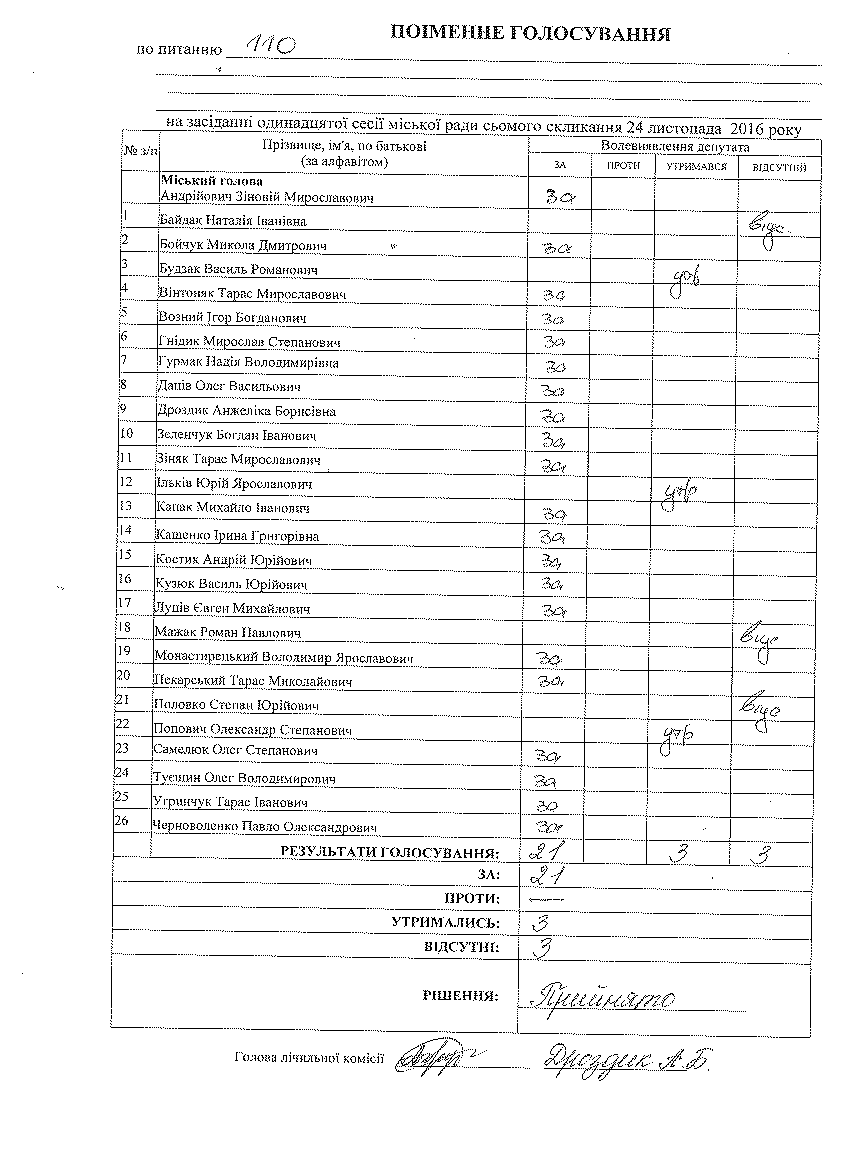 ПОІМЕННЕ ГОЛОСУВАННЯ
по питанню 110
на засіданні одинадцятої сесії міської ради сьомого скликання 24 листопада 2016 року
№ з/п Прізвище, ім'я, по батькові (за алфавітом) Волевиявлення депутата
ЗА ПРОТИ УТРИМАВСЯ ВІДСУТНІЙ
Міський голова
Андрійович Зіновій Мирославович за
1 Байдак Наталія Іванівна відс.
2 Бойчук Микола Дмитрович за
3 Будзак Василь Романович утр
4 Вінтоняк Тарас Мирославович за
5 Возний Ігор Богданович за
6 Гнідик Мирослав Степанович за
7 Гурмак Надія Володимирівна за
8 Даців Олег Васильович за
9 Дроздик Анжеліка Борисівна за
10 Зеленчук Богдан Іванович за
11 Зіняк Тарас Мирославович за
12 Ільків Юрій Ярославович утр
13 Капак Михайло Іванович за
14 Кащенко Ірина Григорівна за
15 Костик Андрій Юрійович за
16 Кузюк Василь Юрійович за
17 Луців Євген Михайлович за
18 Мажак Роман Павлович відс
19 Монастирецький Володимир Ярославович за
20 Пекарський Тарас Миколайович за
21 Половко Степан Юрійович відс
22 Попович Олександр Степанович утр
23 Самелюк Олег Степанович за
24 Туєшин Олег Володимирович за
25 Угринчук Тарас Іванович за
26 Черноволенко Павло Олександрович за
РЕЗУЛЬТАТИ ГОЛОСУВАННЯ: 21 3 3
ЗА: 21
ПРОТИ: —
УТРИМАЛИСЬ: 3
ВІДСУТНІ: 3
РІШЕННЯ: Прийнято
Голова лічильної комісії Дроздик А.Б.